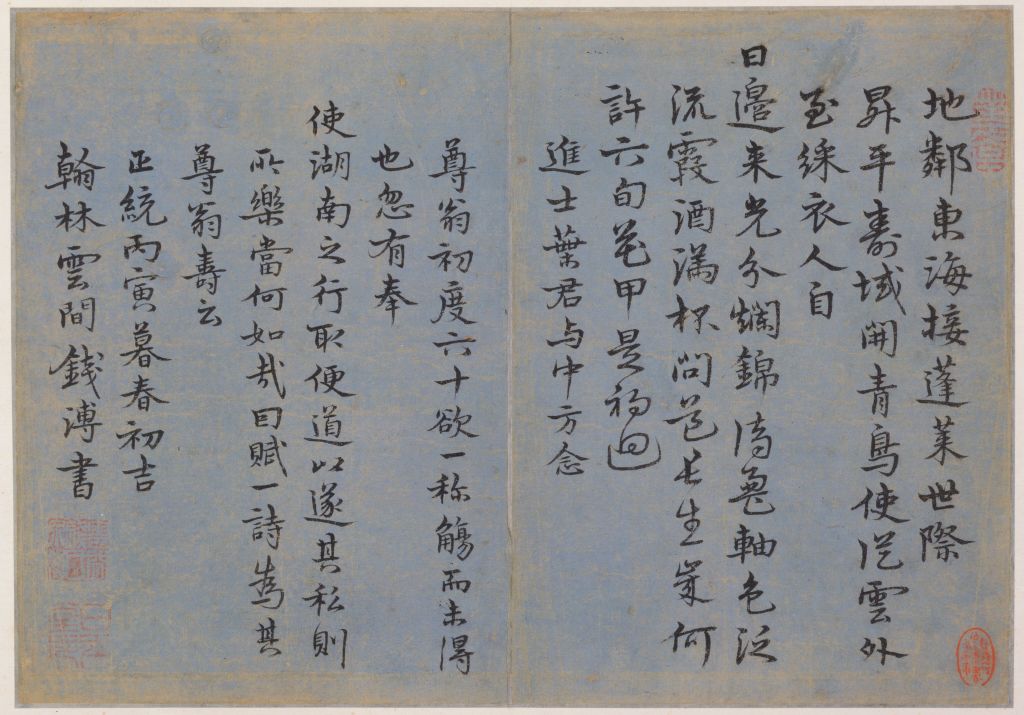 地鄰東海接蓬萊世際
昇平壽域開青鳥使從雲外
至綵衣人自
日邊来光分爛錦軸色泛
流霞酒滿杯問長生歲何
許六旬花甲是初迴
進士葉君与中方念
尊翁初度六十欲一称觴而未得
也忽有奉
使湖南之行取便道以遂其私則
所樂當何如哉因賦一詩為其
尊翁壽云
正統丙寅暮春初吉
翰林雲間錢溥書